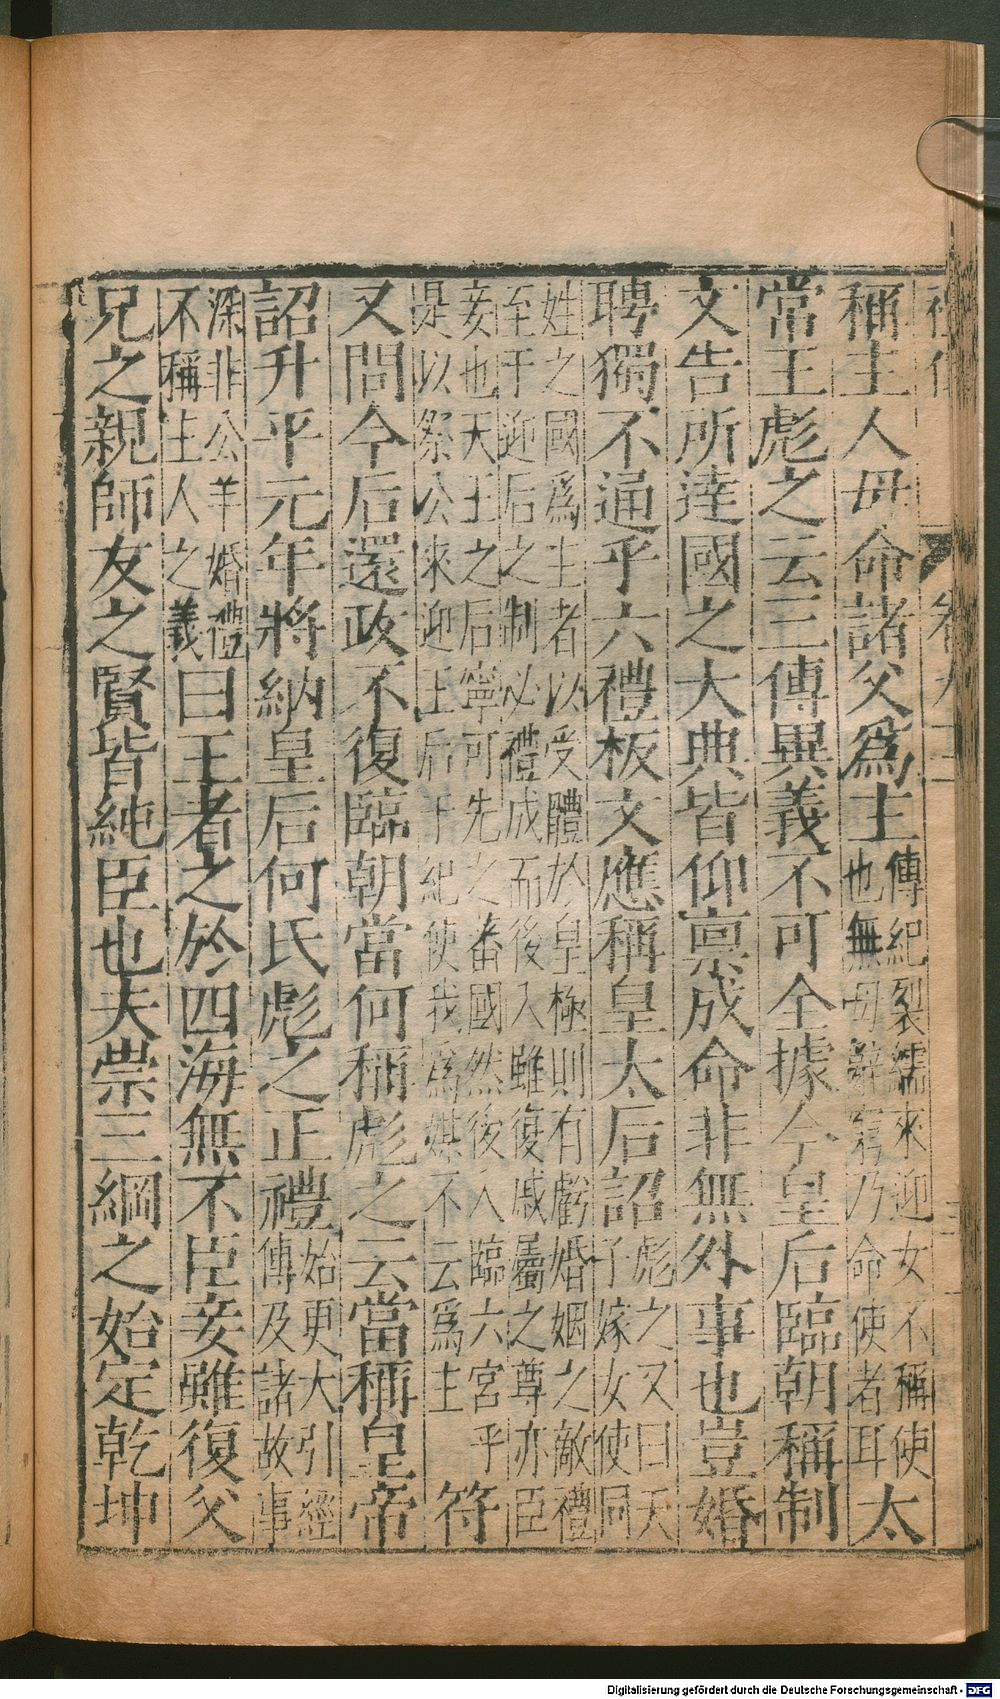 稱主人母命諸父爲主傳紀裂繻來迎女不稱使也無母辭窮乃命使者耳太
常王彪之云三傳異義不可全據今皇后臨朝稱制
文告所達國之大典皆仰稟成命非無外事也豈婚
聘獨不通乎六禮板文應稱皇太后詔彪之又曰天子嫁女使同
姓之國爲主者以受體於皇極則有虧婚姻之敵禮
至于迎后之制必禮成而後入雖復戚屬之尊亦臣
妾也天王之后寧可先之番國然後入臨六宮乎
是以祭公來迎王后于紀使我爲媒不云爲主符
又問今后還政不復臨朝當何稱彪之云當稱皇帝
詔升平元年將納皇后何氏彪之正禮始更大引經傳及諸故事
深非公羊婚禮不稱主人之義曰王者之於四海無不臣妾雖復父
兄之親師友之賢皆純臣也夫崇三綱之始定乾坤
Digitalisierung gefördert durch die Deutsche Forschungsgemeinschaft - DFG